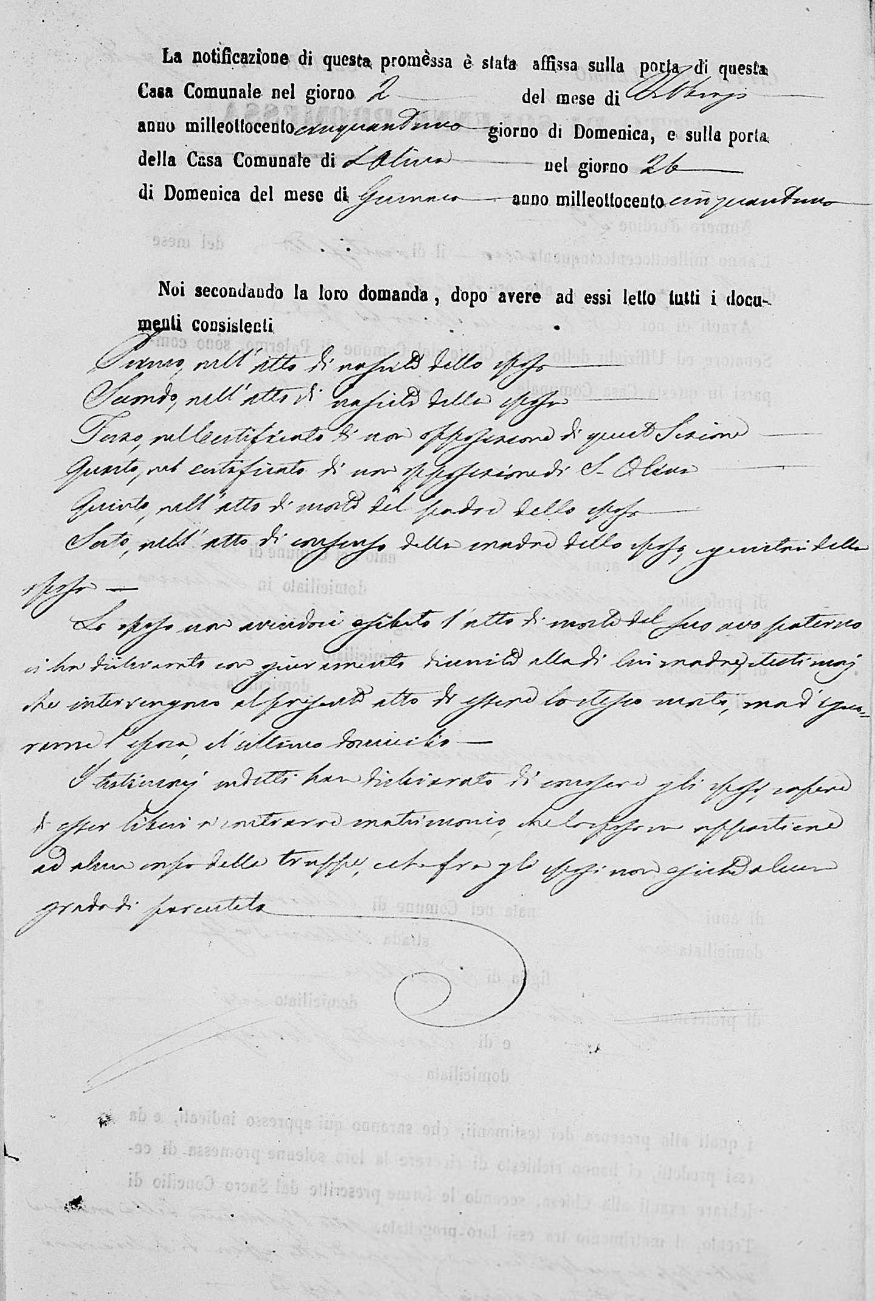 La notificazione di questa promèssa è stata affissa sulla porta di questa
Casa Comunale nel giorno 2 del mese di
anno milleottocento cinquantuno giorno di Domenica, e sulla porta
della Casa Comunale di S. Oliva nel giorno 26
di Domenica del mese di Gennaro anno milleottocento cinquantuno
Noi secondando la loro domanda, dopo avere ad essi letto tutti i docu-
menti consistenti
Primo, nell'atto di nascita dello sposo
Secondo, nell'atto di nascita della sposa
Terzo, nel certificato di non opposizione di questa Sezione
Quarto, nel certificato di non opposizione di S. Oliva
Quinto, nell'atto di morte del padre dello sposo
Sesto, nell'atto di consenso della madre dello sposo, e genitori della
sposa
Lo sposo non avendoci esibito l'atto di morte del suo avo paterno
ci ha dichiarato con giuramento di unita alla di lui madre, e testimonj
che intervengono al presente atto di essere lo stesso morto, ma d'igno-
rarne l'epoca, e l'ultimo domicilio
I testimonj han dichiarato di conoscere gli sposi, sapere
di esser liberi a contrarre matrimonio, che lo sposo non appartiene
ad alcun corpo delle truppe, e che fra gli sposi non esiste alcun
grado di parentela